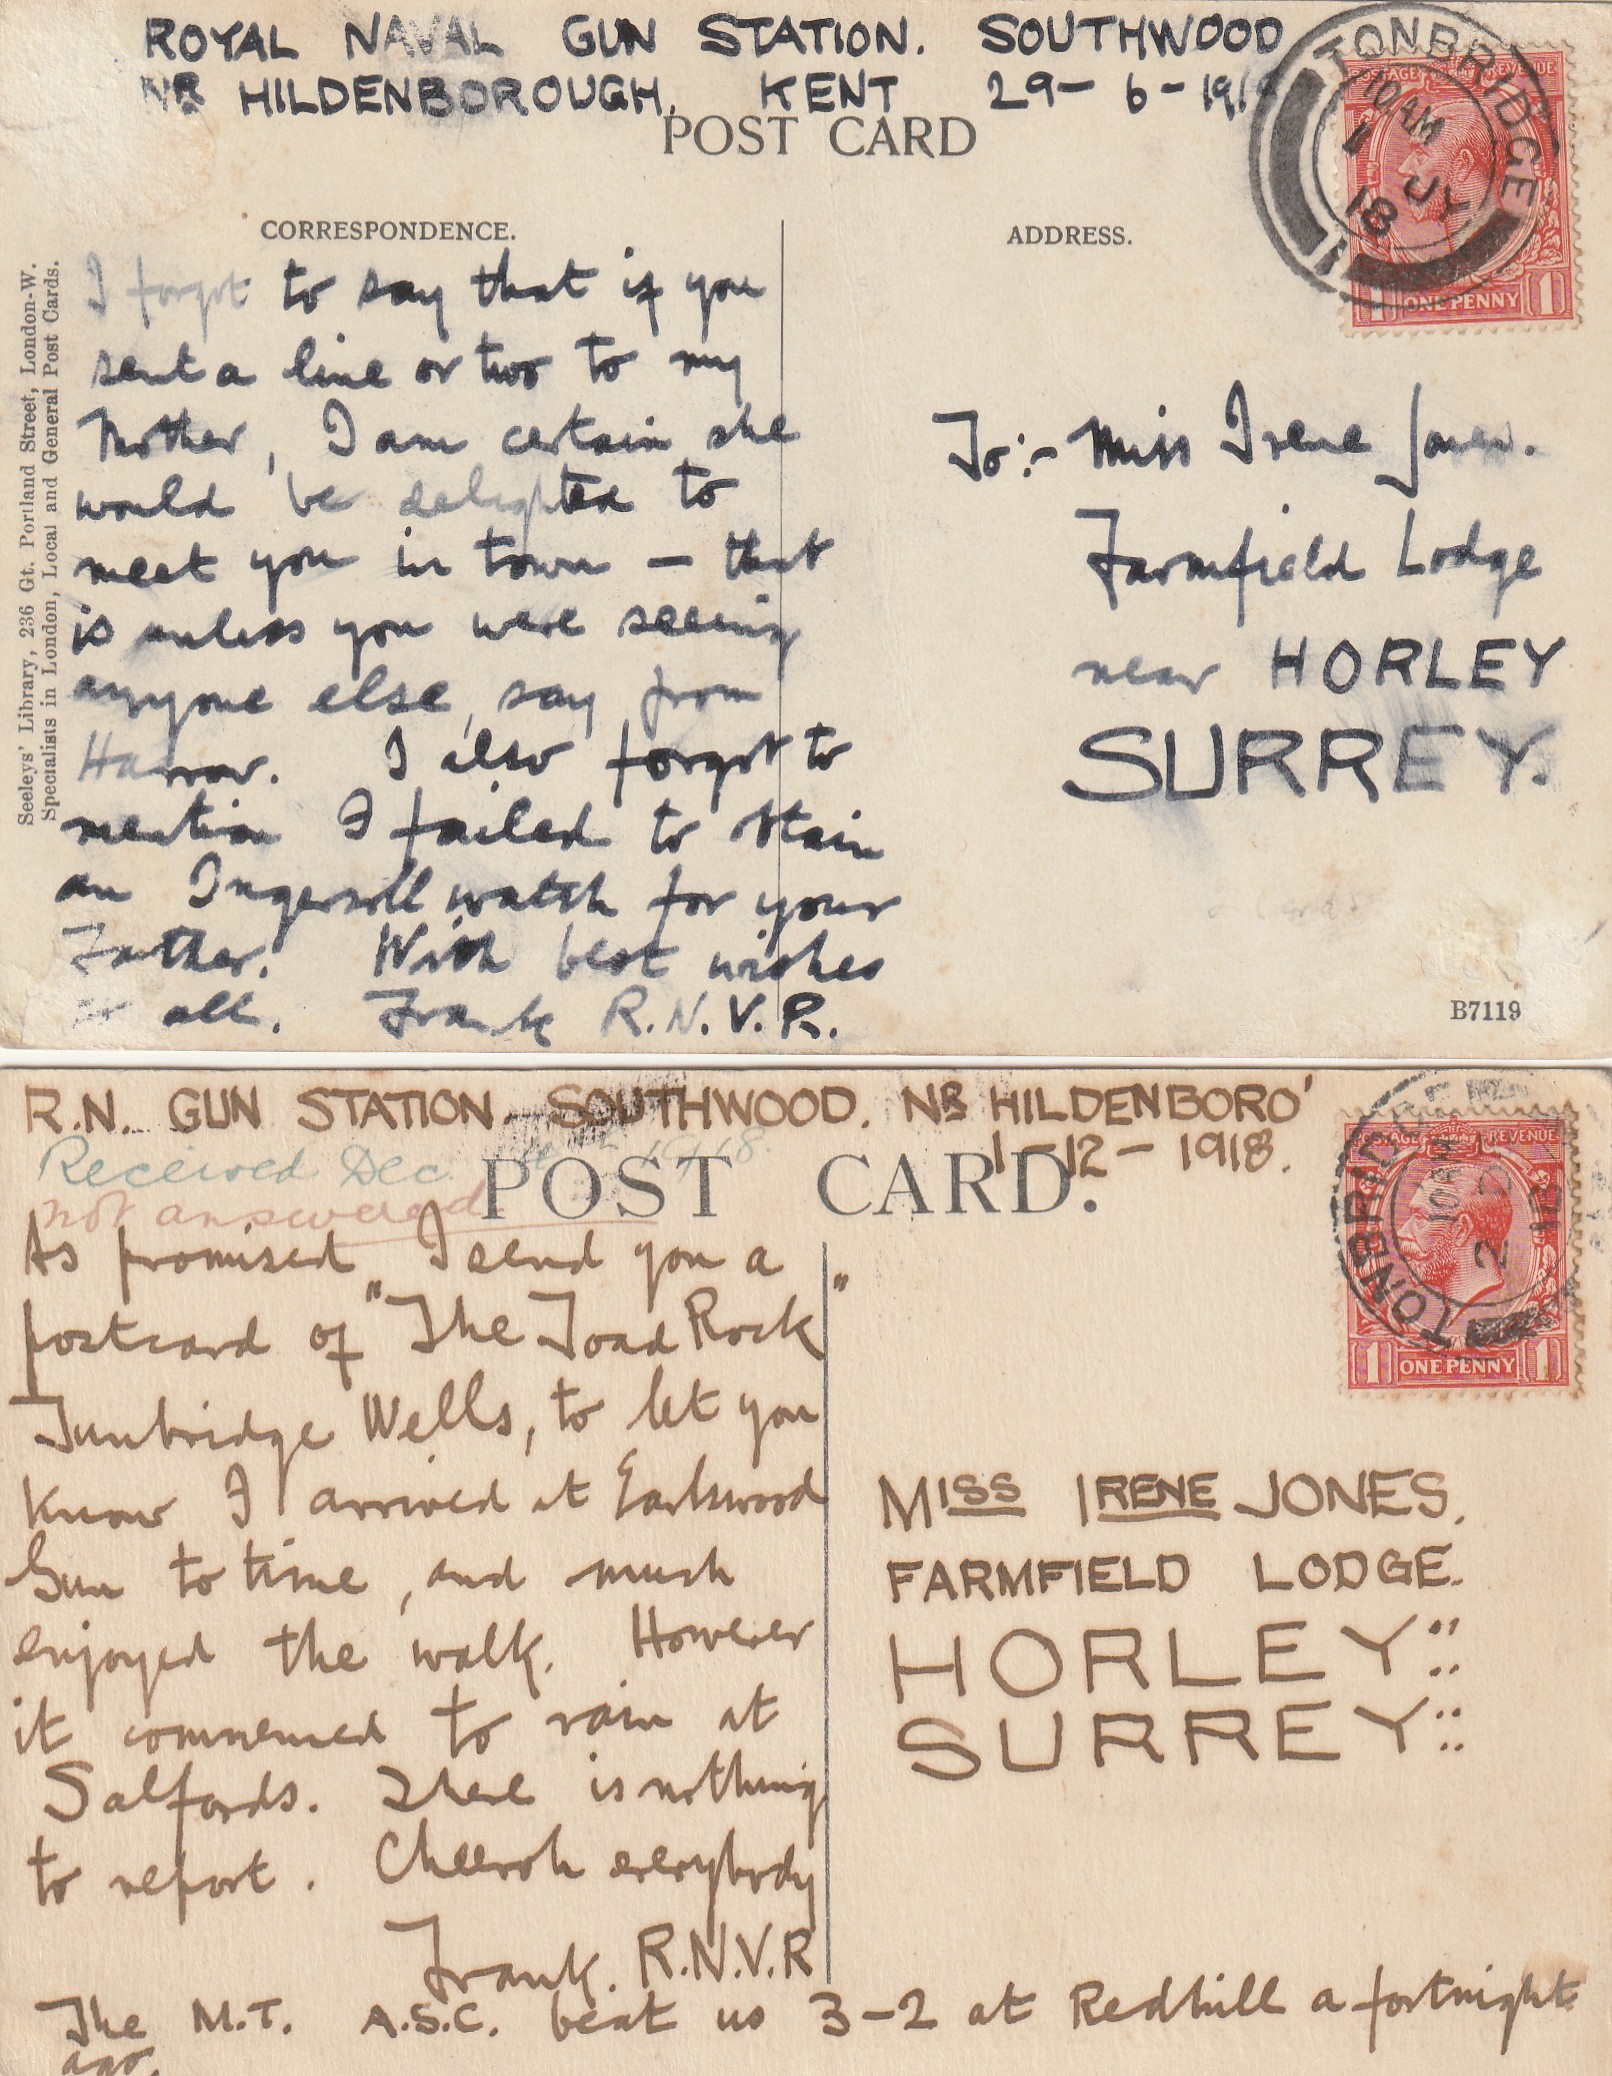 ROYAL NAVAL GUN STATION. SOUTHWOOD
NR HILDENBOROUGH, KENT 29-6-1918
POST CARD
TONBRIDGE
10 AM
1 JY
18
POSTAGE REVENUE
1 ONE PENNY 1
CORRESPONDENCE.
ADDRESS.
Seeleys' Library, 236 Gt. Portland Street, London-W.
Specialists in London, Local and General Post Cards.
I forgot to say that if you
sent a line or two to my
Mother, I am certain she
would be delighted to
meet you in town – that
is unless you were seeing
anyone else, say from
Harrow. I also forgot to
mention I failed to obtain
an Ingersoll watch for your
Father. With best wishes
to all. Frank R.N.V.R.
To:- Miss Irene Jones.
Farmfield Lodge
near HORLEY
SURREY.
B7119
R.N. GUN STATION. SOUTHWOOD. NR HILDENBORO'
1-12-1918.
Received Dec 1918
not answered
POST CARD.
TONBRIDGE
10 AM
2
POSTAGE REVENUE
1 ONE PENNY 1
As promised I send you a
postcard of "The Toad Rock"
Tunbridge Wells, to let you
know I arrived at Earlswood
Gun to time, and much
enjoyed the walk. However
it commenced to rain at
Salfords. There is nothing
to report. Cheeroh everybody
Frank. R.N.V.R
The M.T. A.S.C. beat us 3-2 at Redhill a fortnight
ago.
MISS IRENE JONES.
FARMFIELD LODGE.
HORLEY::
SURREY::